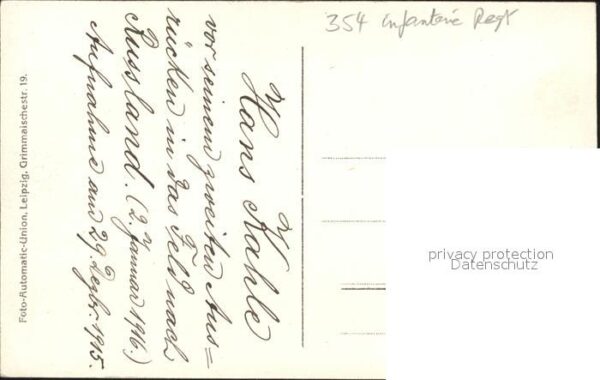 354 Infanterie Regt
„Hans Kahle“
vor seinem zweiten Aus=
rücken in das Feld nach
Russland. (2. Januar 1916.)
Aufnahme am 29. Dezbr. 1915.
Foto-Automatic-Union, Leipzig, Grimmaischestr. 19.
privacy protection
Datenschutz